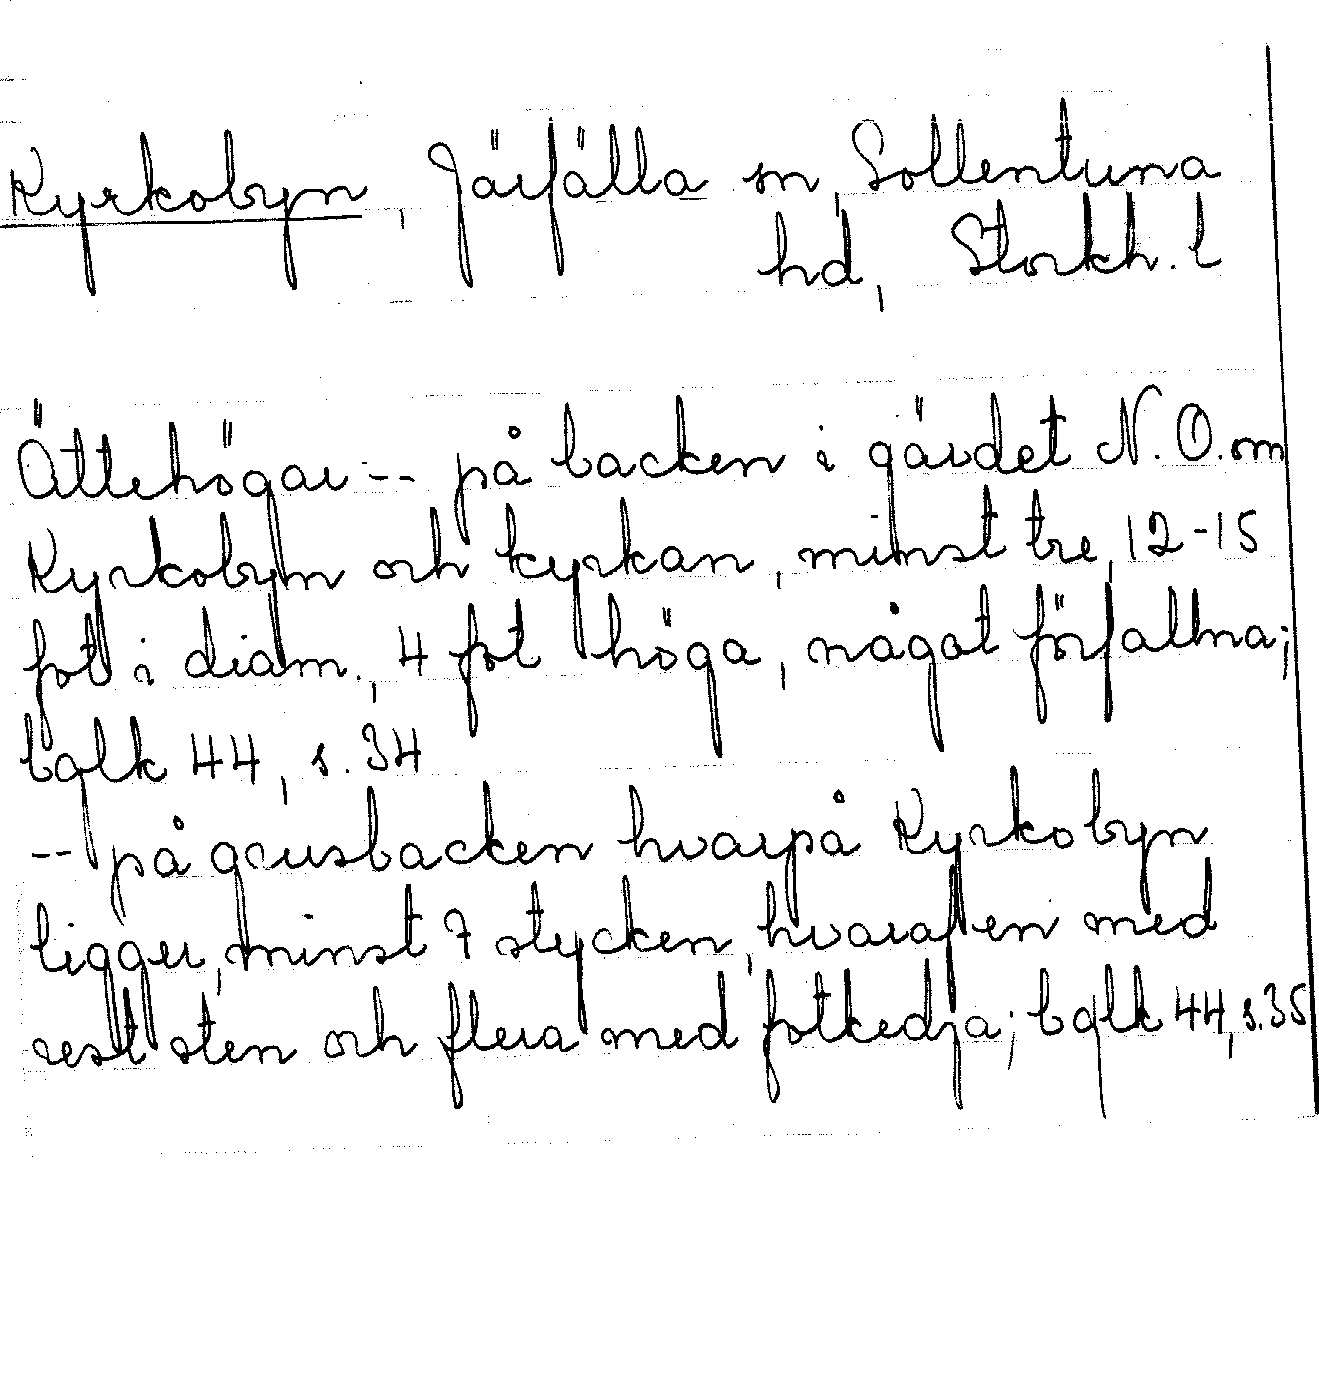 Kyrkobyn, Järfälla sn, Sollentuna
hd, Stockh. l
Ättehögar -- på backen i gärdet N.O. om
Kyrkobyn och kyrkan, minst tre, 12-15
fot i diam., 4 fot höga, något förfallna;
balk 44, s. 34
-- på grusbacken hvarpå Kyrkobyn
ligger, minst 7 stycken, hvaraf en med
rest sten och flera med fotkedja; balk 44, s. 35